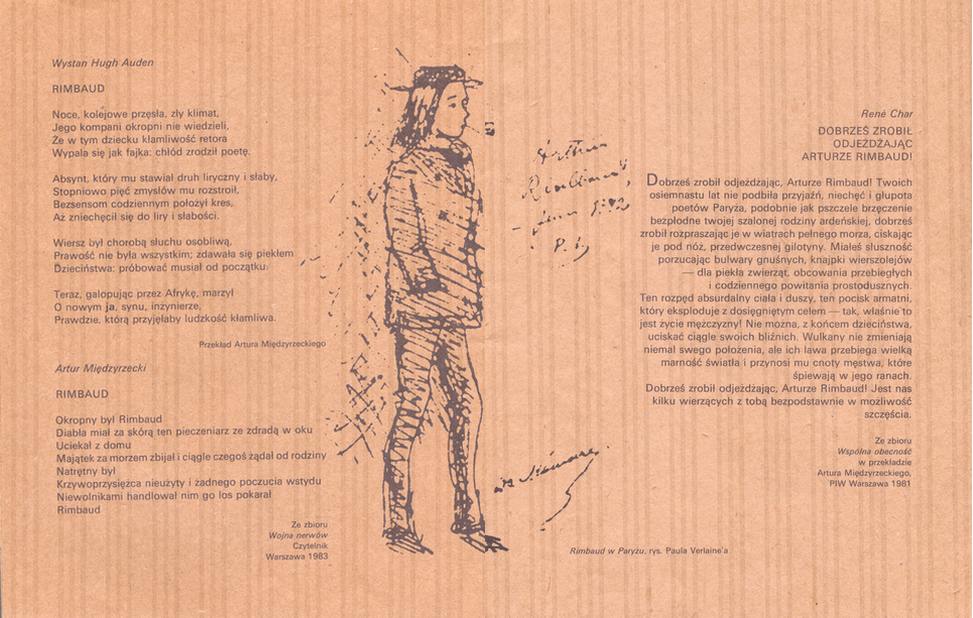 Wystan Hugh Auden
RIMBAUD
Noce, kolejowe przęsła, zły klimat,
Jego kompani okropni nie wiedzieli,
Że w tym dziecku kłamliwość retora
Wypala się jak fajka: chłód zrodził poetę.
Absynt, który mu stawiał druh liryczny i słaby,
Stopniowo pięć zmysłów mu rozstroił,
Bezsensom codziennym położył kres,
Aż zniechęcił się do liry i słabości.
Wiersz był chorobą słuchu osobliwą,
Prawość nie była wszystkim; zdawała się piekłem
Dzieciństwa: próbować musiał od początku.
Teraz, galopując przez Afrykę, marzył
O nowym ja, synu, inżynierze,
Prawdzie, którą przyjęłaby ludzkość kłamliwa.
Przekład Artura Międzyrzeckiego
Artur Międzyrzecki
RIMBAUD
Okropny był Rimbaud
Diabła miał za skórą ten pieczeniarz ze zdradą w oku
Uciekał z domu
Majątek za morzem zbijał i ciągle czegoś żądał od rodziny
Natrętny był
Krzywoprzysięzca nieużyty i żadnego poczucia wstydu
Niewolnikami handlował nim go los pokarał
Rimbaud
Ze zbioru
Wojna nerwów
Czytelnik
Warszawa 1983
Arthur
Rimbaud,
juin 1872
P. V.
Rimbaud w Paryżu, rys. Paula Verlaine'a
René Char
DOBRZEŚ ZROBIŁ
ODJEŻDŻAJĄC
ARTURZE RIMBAUD!
Dobrześ zrobił odjeżdżając, Arturze Rimbaud! Twoich
osiemnastu lat nie podbiła przyjaźń, niechęć i głupota
poetów Paryża, podobnie jak pszczele brzęczenie
bezpłodne twojej szalonej rodziny ardeńskiej, dobrześ
zrobił rozpraszając je w wiatrach pełnego morza, ciskając
je pod nóż, przedwczesnej gilotyny. Miałeś słuszność
porzucając bulwary gnuśnych, knajpki wierszolejów
— dla piekła zwierząt, obcowania przebiegłych
i codziennego powitania prostodusznych.
Ten rozpęd absurdalny ciała i duszy, ten pocisk armatni,
który eksploduje z dosięgniętym celem — tak, właśnie to
jest życie mężczyzny! Nie można, z końcem dzieciństwa,
uciskać ciągle swoich bliźnich. Wulkany nie zmieniają
niemal swego położenia, ale ich lawa przebiega wielką
marność światła i przynosi mu cnoty męstwa, które
śpiewają w jego ranach.
Dobrześ zrobił odjeżdżając, Arturze Rimbaud! Jest nas
kilku wierzących z tobą bezpodstawnie w możliwość
szczęścia.
Ze zbioru
Wspólna obecność
w przekładzie
Artura Międzyrzeckiego,
PIW Warszawa 1981